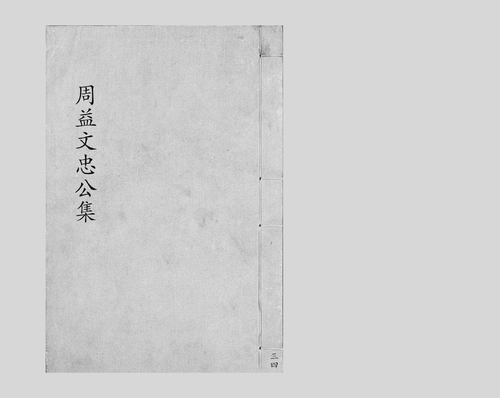 周益文忠公集
三四